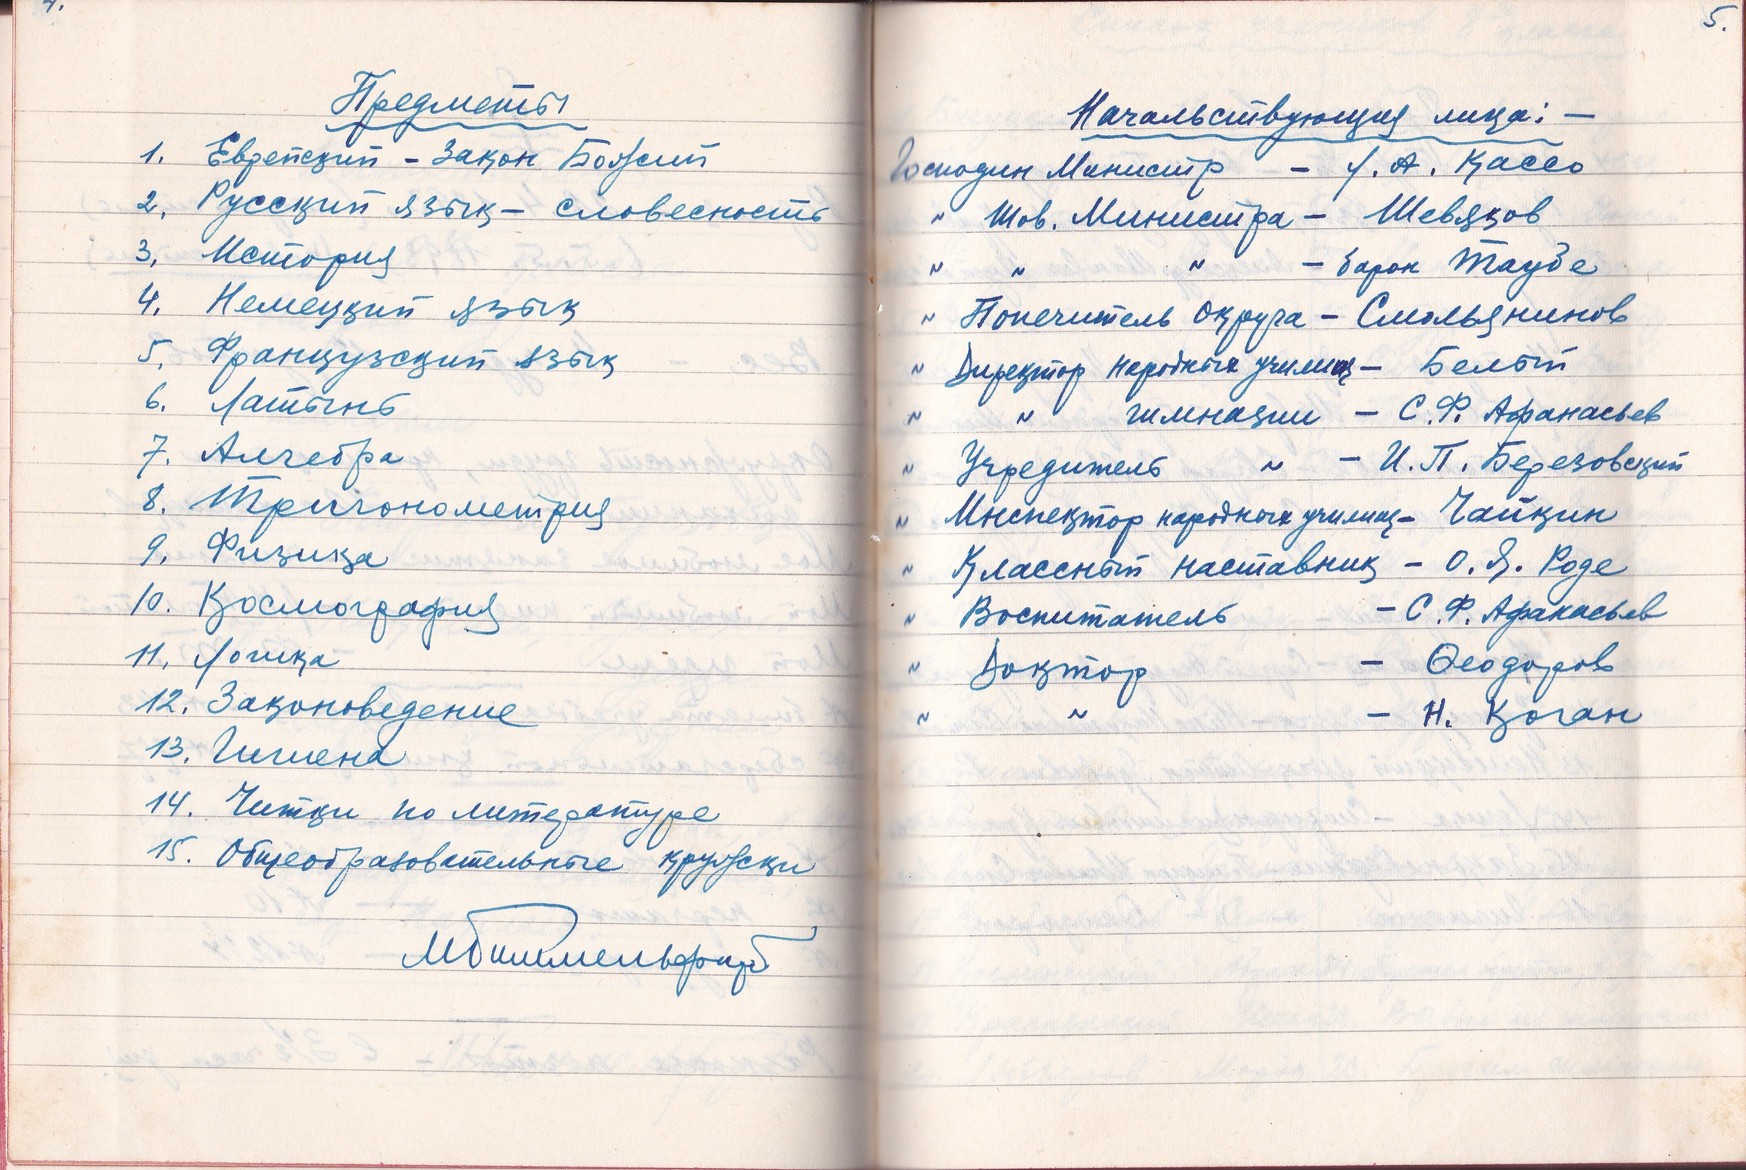 4.
Предметы
1. Еврейский - Закон Божий
2. Русский язык - словесность
3. История
4. Немецкий язык
5. Французский язык
6. Латынь
7. Алгебра
8. Тригонометрия
9. Физика
10. Космография
11. Логика
12. Законоведение
13. Гигиена
14. Читки по литературе
15. Общеобразовательные кружки
5.
Начальствующия лица: —
Господин Министр - Л. А. Кассо
" Тов. Министра - Шевяков
" " " - барон Таубе
" Попечитель округа - Смольянинов
" Директор народных училищ - Белый
" " гимназии - С. Ф. Афанасьев
" Учредитель " - И. П. Березовский
" Инспектор народных училищ - Чайкин
" Классный наставник - О. Я. Роде
" Воспитатель - С. Ф. Афанасьев
" Доктор - Феодоров
" " - Н. Коган